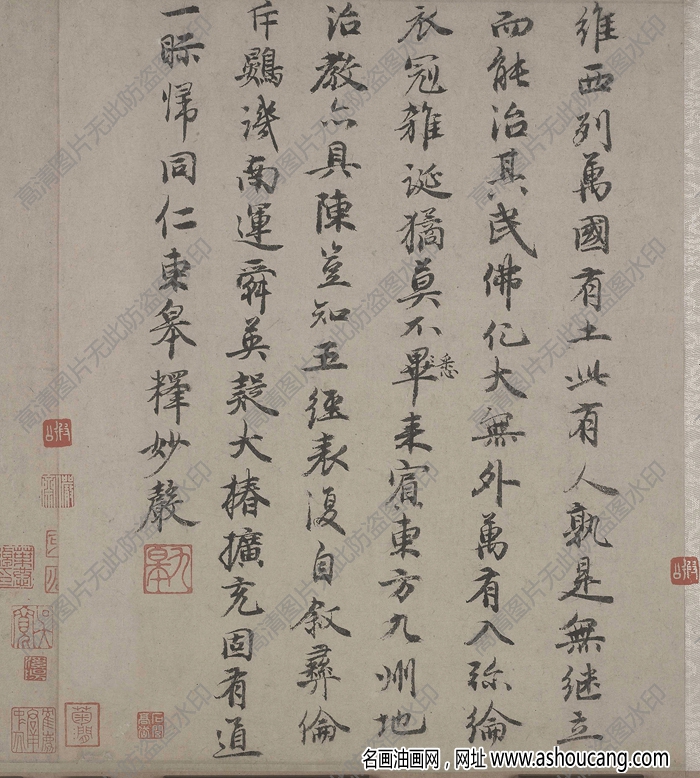 維西列萬國有土此有人孰是無継立
而能治其民佛化大無外萬有入弥綸
衣冠雜誕獝莫不畢来賓東方九州地
悉
治教亦具陳豈知五經表復自叙彝倫
斥鷃譏南運舜英疑大椿擴充固有道
一眎歸同仁東皋釋妙聲
九皋
高清图片无此防盗图水印
名画油画网，网址 www.ashoucang.com